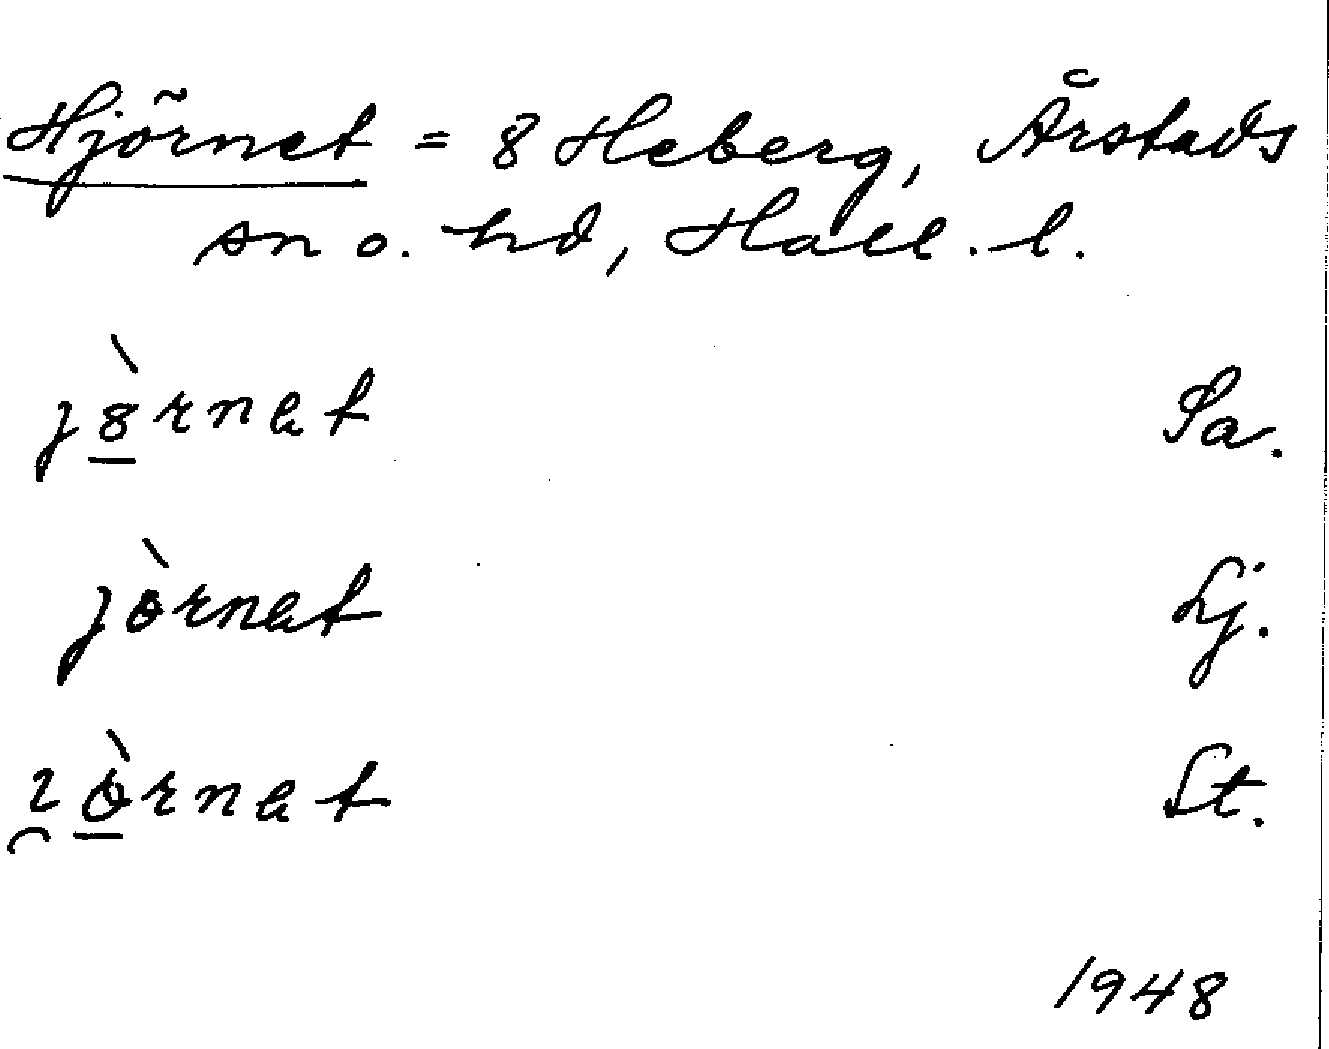 Hjörnet = 8 Heberg, Årstads
sn o. hd, Hall. l.
j8̲̀rnat Sa.
jòrnat Lj.
ı̯ò̲rnat St.
1948